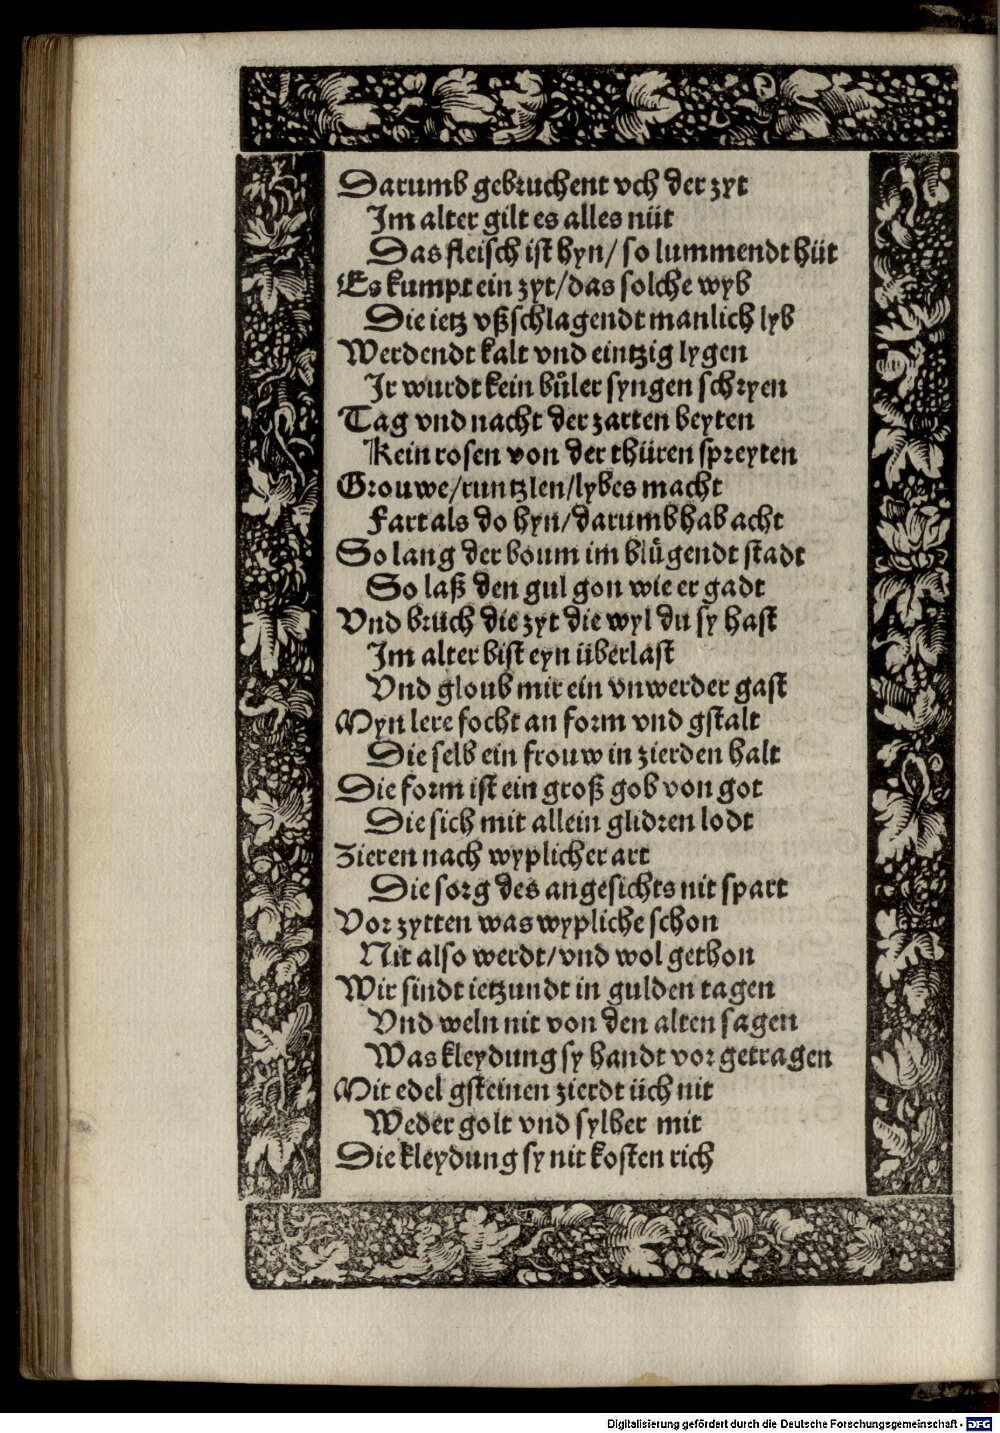 Darumb gebruchent vch der zyt
Im alter gilt es alles nüt
Das fleisch ist hyn/ so lummendt hüt
Es kumpt ein zyt/das solche wyb
Die ietz vßschlagendt manlich lyb
Werdendt kalt vnd eintzig lygen
Ir wurdt kein bůler syngen schryen
Tag vnd nacht der zarten beyten
Kein rosen von der thüren spreyten
Grouwe/runtzlen/lybes macht
Fart als do hyn/darumb hab acht
So lang der boum im blůgendt stadt
So laß den gul gon wie er gadt
Vnd bruch die zyt die wyl du sy hast
Im alter bist eyn überlast
Vnd gloub mir ein vnwerder gast
Myn lere focht an form vnd gstalt
Die selb ein frouw in zierden halt
Die form ist ein groß gob von got
Die sich mit allein glidren lodt
Zieren nach wyplicher art
Die sorg des angesichts nit spart
Vor zytten was wypliche schon
Nit also werdt/vnd wol gethon
Wir sindt ietzundt in gulden tagen
Vnd weln nit von den alten sagen
Was kleydung sy handt vor getragen
Mit edel gsteinen zierdt üch nit
Weder golt vnd sylber mit
Die kleydung sy nit kosten rich
Digitalisierung gefördert durch die Deutsche Forschungsgemeinschaft - DFG